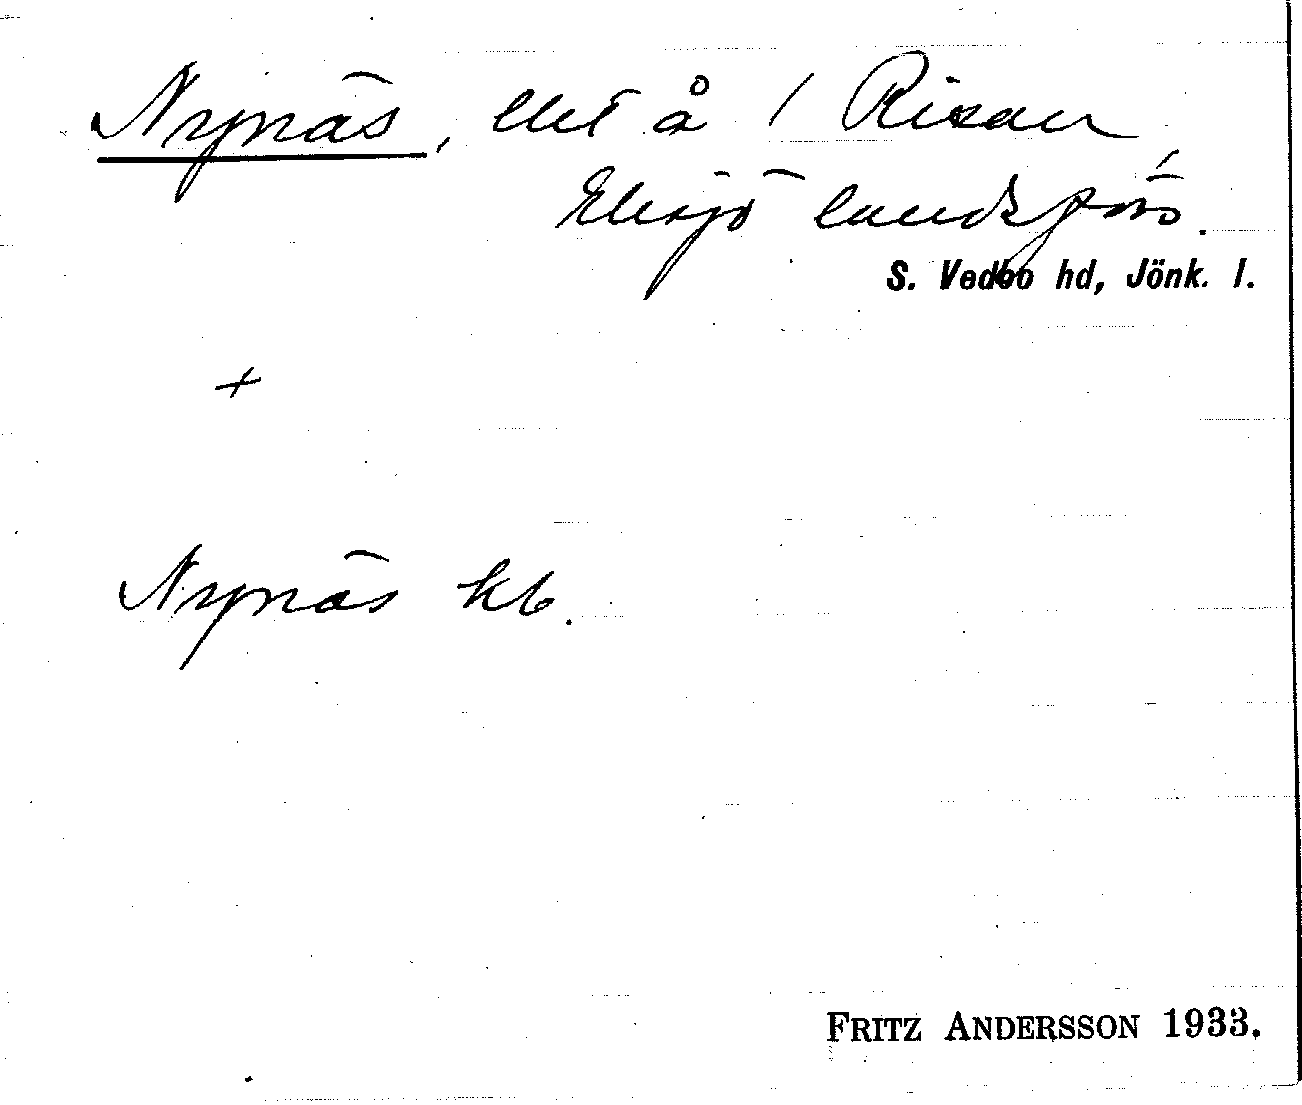 Nynäs, lht å 1 Risan
Eksjö landsförs.
S. Vedbo hd, Jönk. l.
+
Nynäs kb.
FRITZ ANDERSSON 1933.